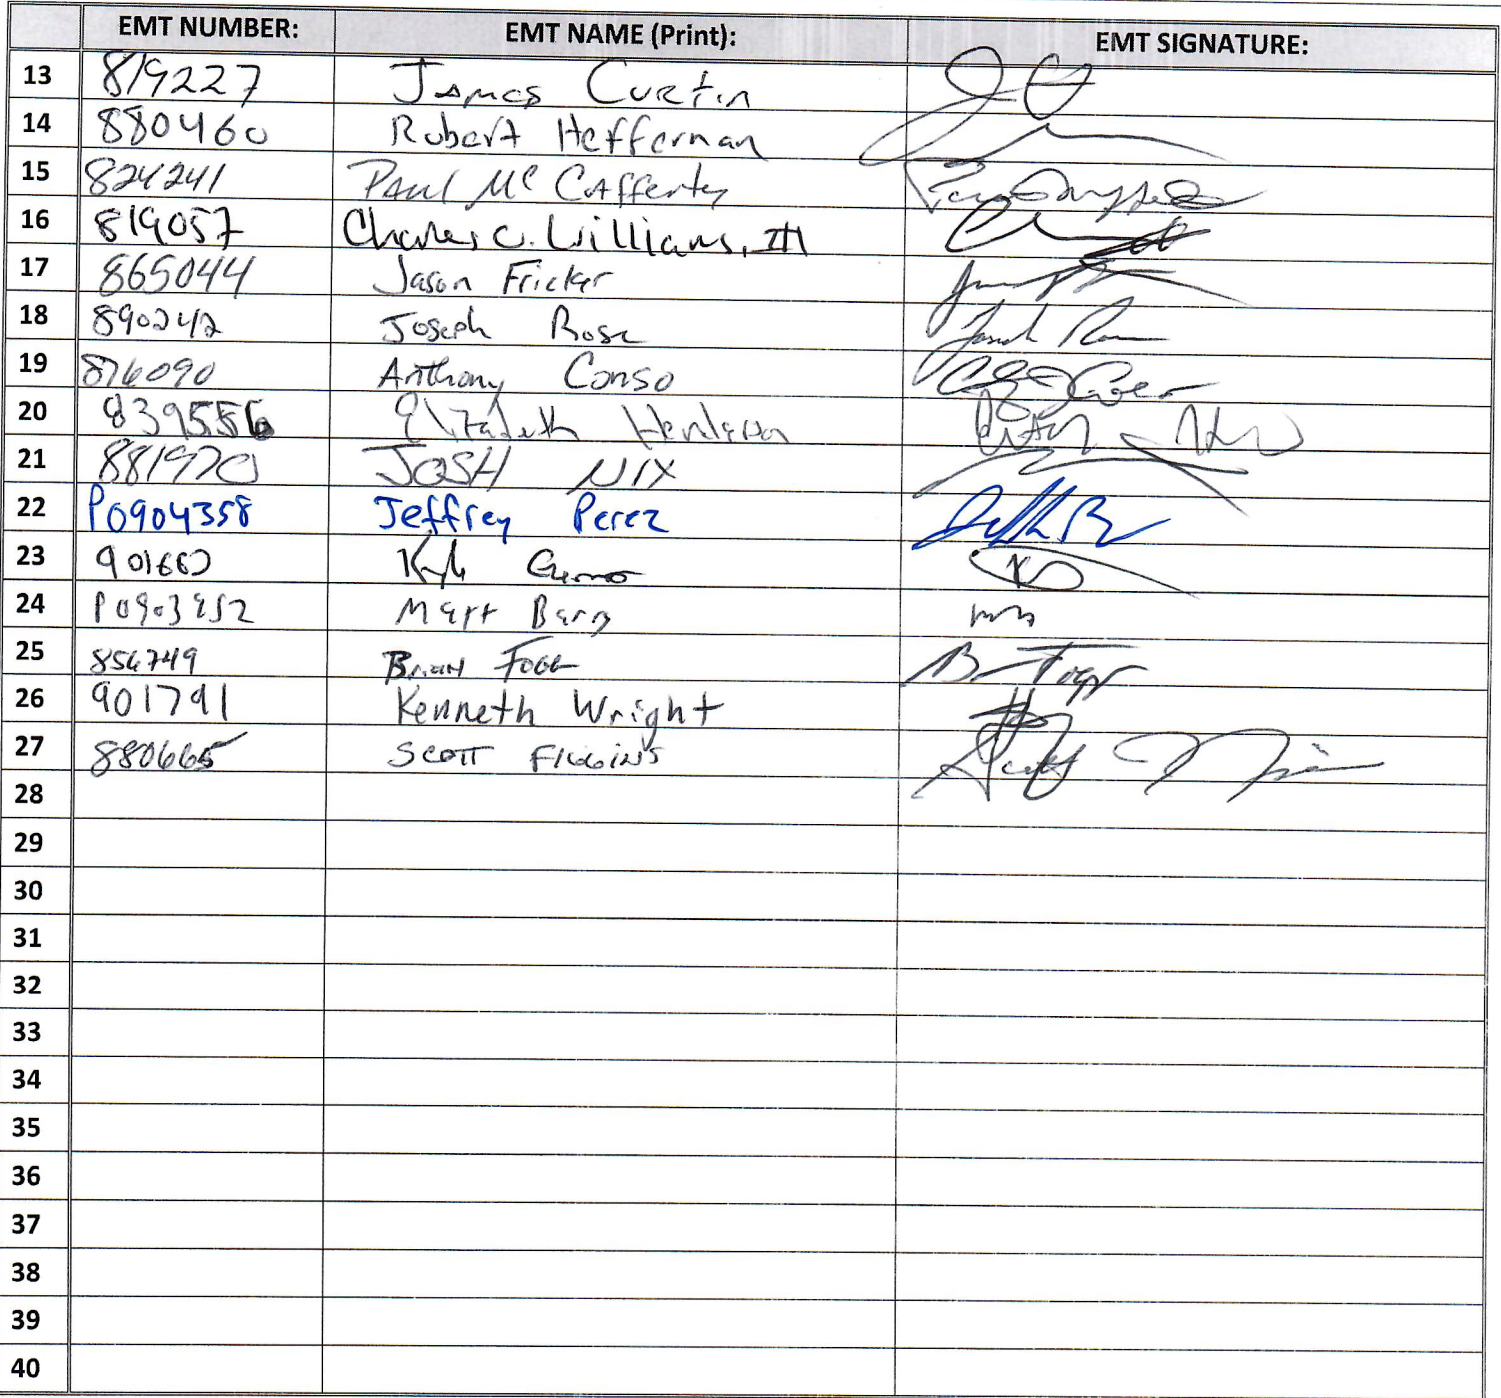 EMT NUMBER: EMT NAME (Print): EMT SIGNATURE:
13 819227 James Curtin
14 880460 Robert Heffernan
15 824241 Paul McCafferty
16 819057 Charles C. Williams, III
17 865044 Jason Fricker
18 890242 Joseph Rose
19 876090 Anthony Conso
20 839586 Elizabeth Henderson
21 881970 JOSH NIX
22 P0904358 Jeffrey Perez
23 Kyle
24 Matt Barry
25 856749 Brian Fogg B Fogg
26 901791 Kenneth Wright
27 880665 Scott Figgins Scott
28
29
30
31
32
33
34
35
36
37
38
39
40